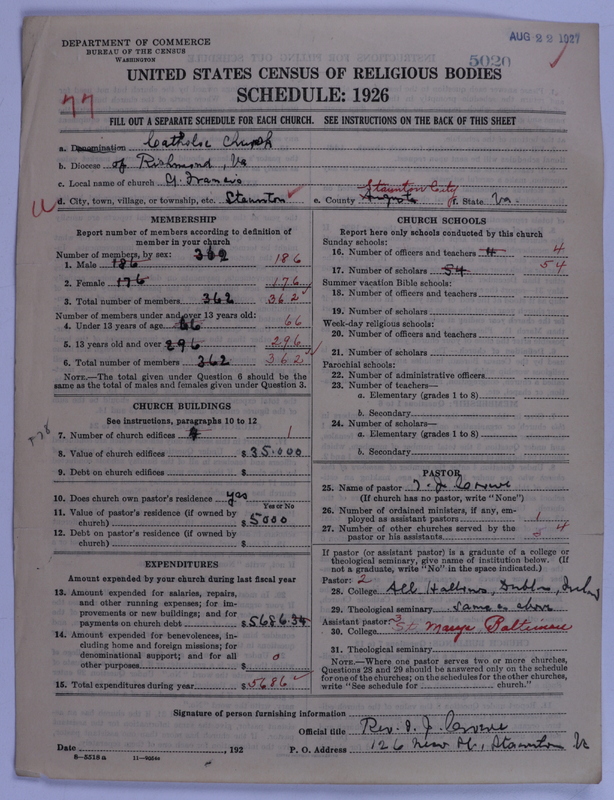 AUG 22 1927
DEPARTMENT OF COMMERCE
BUREAU OF THE CENSUS
WASHINGTON
5020
UNITED STATES CENSUS OF RELIGIOUS BODIES
SCHEDULE: 1926
77
FILL OUT A SEPARATE SCHEDULE FOR EACH CHURCH. SEE INSTRUCTIONS ON THE BACK OF THIS SHEET
a. Denomination Catholic Church
b. Diocese of Richmond, Va
c. Local name of church St Francis
Staunton City
d. City, town, village, or township, etc. Staunton e. County Augusta f. State Va.
MEMBERSHIP
Report number of members according to definition of
member in your church
Number of members, by sex: 362
1. Male 186 186
2. Female 176 176
3. Total number of members 362 362
Number of members under and over 13 years old:
4. Under 13 years of age 66 66
5. 13 years old and over 296 296
6. Total number of members 362 362
NOTE.—The total given under Question 6 should be the
same as the total of males and females given under Question 3.
CHURCH BUILDINGS
See instructions, paragraphs 10 to 12
7. Number of church edifices 1
8. Value of church edifices $ 35.000
9. Debt on church edifices $
10. Does church own pastor's residence yes
Yes or No
11. Value of pastor's residence (if owned by
church) $ 5000
12. Debt on pastor's residence (if owned by
church) $
EXPENDITURES
Amount expended by your church during last fiscal year
13. Amount expended for salaries, repairs,
and other running expenses; for im-
provements or new buildings; and for
payments on church debt $ 5686.34
14. Amount expended for benevolences, in-
cluding home and foreign missions; for
denominational support; and for all
other purposes $ 0
15. Total expenditures during year $ 5686
CHURCH SCHOOLS
Report here only schools conducted by this church
Sunday schools:
16. Number of officers and teachers 4 4
17. Number of scholars 54 54
Summer vacation Bible schools:
18. Number of officers and teachers
19. Number of scholars
Week-day religious schools:
20. Number of officers and teachers
21. Number of scholars
Parochial schools:
22. Number of administrative officers
23. Number of teachers—
a. Elementary (grades 1 to 8)
b. Secondary
24. Number of scholars—
a. Elementary (grades 1 to 8)
b. Secondary
PASTOR
25. Name of pastor
(If church has no pastor, write "None")
26. Number of ordained ministers, if any, em-
ployed as assistant pastors 1
27. Number of other churches served by the
pastor or his assistants 4
If pastor (or assistant pastor) is a graduate of a college or
theological seminary, give name of institution below. (If
not a graduate, write "No" in the space indicated.)
Pastor: 2
28. College All Hallows, Dublin, Ireland
29. Theological seminary same as above
Assistant pastor: 3
30. College St Marys Baltimore
31. Theological seminary
NOTE.—Where one pastor serves two or more churches,
Questions 28 and 29 should be answered only on the schedule
for one of the churches; on the schedules for the other churches,
write "See schedule for church."
Signature of person furnishing information
Official title Rev.
Date , 192 P. O. Address 126 New St., Staunton Va
8—5518a 11—9058